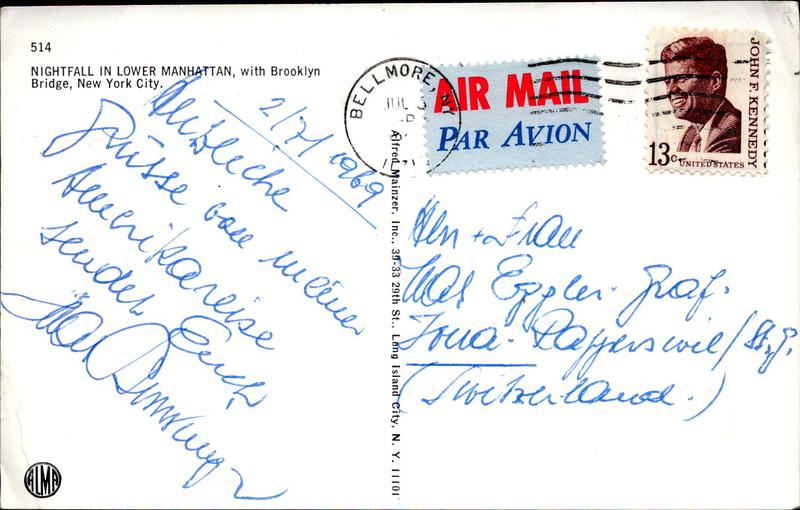 514
NIGHTFALL IN LOWER MANHATTAN, with Brooklyn
Bridge, New York City.
2/7/1969
Herzliche
Grüsse von meiner
Amerikareise
sendet Euch
Max
BELLMORE, N.Y.
JUL 3
AIR MAIL
PAR AVION
JOHN F. KENNEDY
13c UNITED STATES
Alfred Mainzer, Inc., 39-33 29th St., Long Island City, N. Y. 11101
Herr + Frau
Max Eggler-Graf.
Jona-Rapperswil/St.G.
(Switzerland.)
ALMA